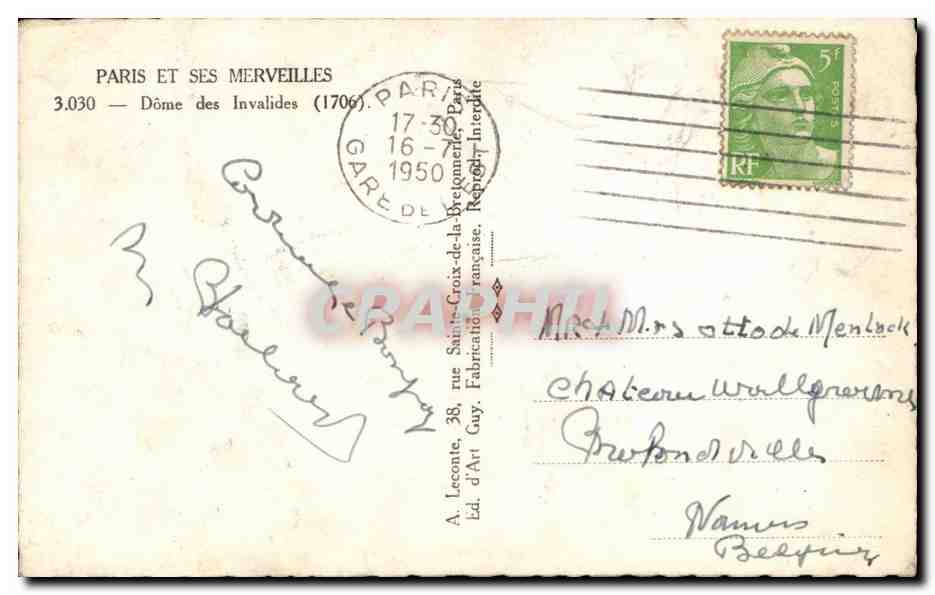 PARIS ET SES MERVEILLES
3.030 — Dôme des Invalides (1706).
PARIS
17-30
16-7
1950
GARE DE L'EST
5f
POSTES
RF
A. Leconte, 38, rue Sainte-Croix-de-la-Bretonnerie, Paris
Ed. d'Art Guy. Fabrication Française. Reprod. Interdite
CPAPHIL
Mr & Mrs otto de Menlock
Chateau
Profondeville
Namur
Belgium